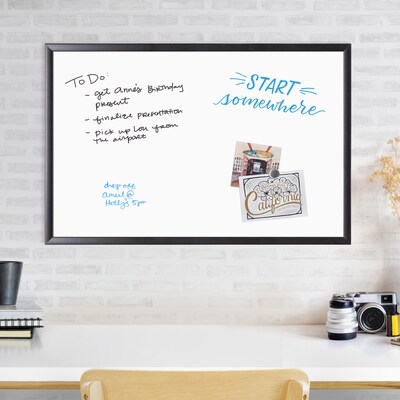 To Do:
- get Anne's Birthday
present
- finalize presentation
- pick up Lou from
the airport
START
somewhere
drop off
@
Holly's 5pm
California